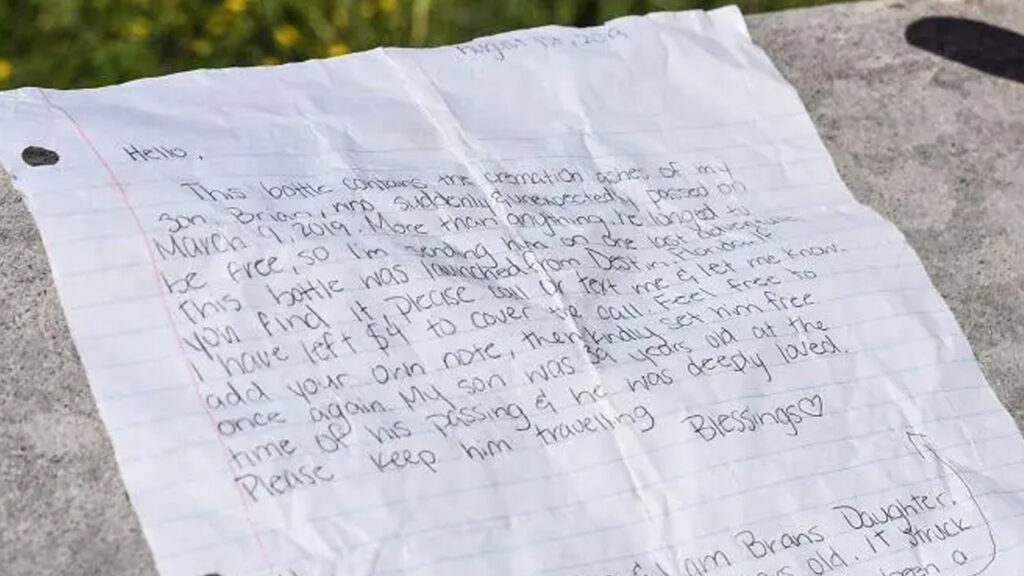 August 1st, 2019
Hello,
This bottle contains the cremation ashes of my
son, Brian, who suddenly & unexpectedly passed on
March 9, 2019. More than anything, he longed to
be free, so I'm sending him on one last adventure.
This bottle was launched from Destin, Florida. If
you find it, please call or text me & let me know.
I have left $4 to cover the call. Feel free to
add your own note, then kindly set him free
once again. My son was 39 years old at the
time of his passing & he was deeply loved.
Please keep him travelling Blessings♡
I am Brians Daughter.
old. It struck
been a